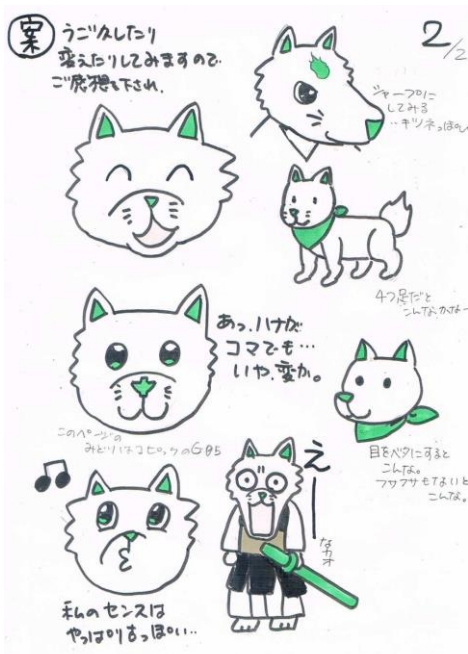 案
うごかしたり
変えたりしてみますので
ご感想を下され。
2/2
シャープに
してみる
‥キツネっぽい
4つ足だと
こんなかなー
あっ、ハナが
コマでも…
いや、変か。
このページの
みどりはコピックのG05
目をベタにすると
こんな。
フサフサもてないと
こんな。
えー
なカオ
私のセンスは
やっぱり古っぽい…